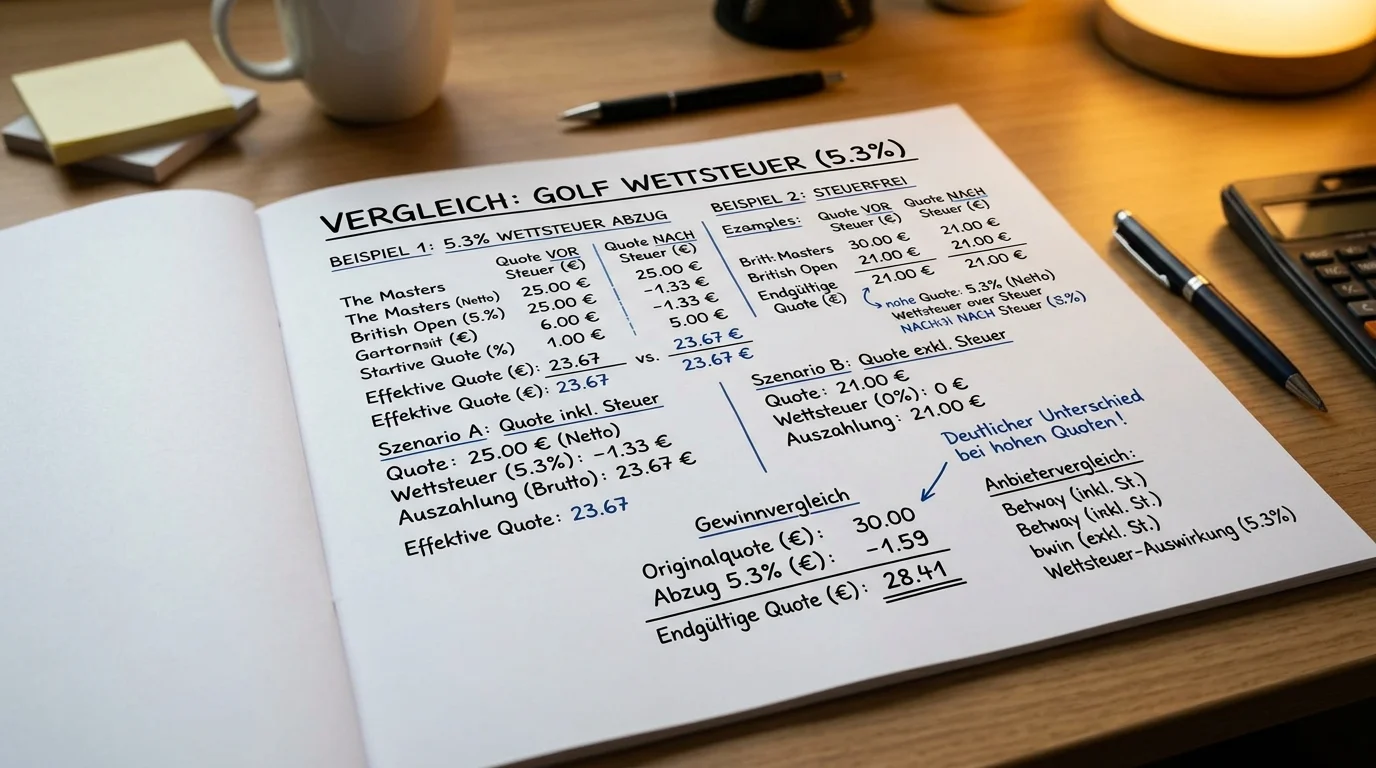 VERGLEICH: GOLF WETTSTEUER (5.3%)
BEISPIEL 1: 5.3% WETTSTEUER ABZUG
Quote VOR Steuer (€) Quote NACH Steuer (€)
The Masters 25.00 € 25.00 €
The Masters (Netto) 25.00 € -1.33 €
British Open (5.%) 6.00 € -1.33 €
(€) 1.00 € 5.00 €
Startive Quote (%)
Effektive Quote (€): 23.67 vs. 23.67 €
Effektive Quote (€): 23.67 23.67 €
Szenario A: Quote inkl. Steuer
Quote: 25.00 € (Netto)
Wettsteuer (5.3%): -1.33 €
Auszahlung (Brutto): 23.67 €
Effektive Quote: 23.67
BEISPIEL 2: STEUERFREI
Ezamples: Quote VOR Steuer (€) Quote NACH Steuer (€)
Masters 30.00 € 21.00 €
British Open 21.00 € 21.00 €
Endgültige Quote (€) 21.00 € 21.00 €
Quote: 5.3% (Netto)
Wettsteuer over Steuer
NACH Steuer (5.%)
Szenario B: Quote exkl. Steuer
Quote: 21.00 €
Wettsteuer (0%): 0 €
Auszahlung: 21.00 €
Deutlicher Unterschied
bei hohen Quoten!
Gewinnvergleich
Originalquote (€): 30.00
Abzug 5.3% (€): -1.59
Endgültige Quote (€): 28.41
Anbietervergleich:
Betway (inkl. St.)
Betway (inkl. St.)
bwin (exkl. St.)
Wettsteuer-Auswirkung (5.3%)